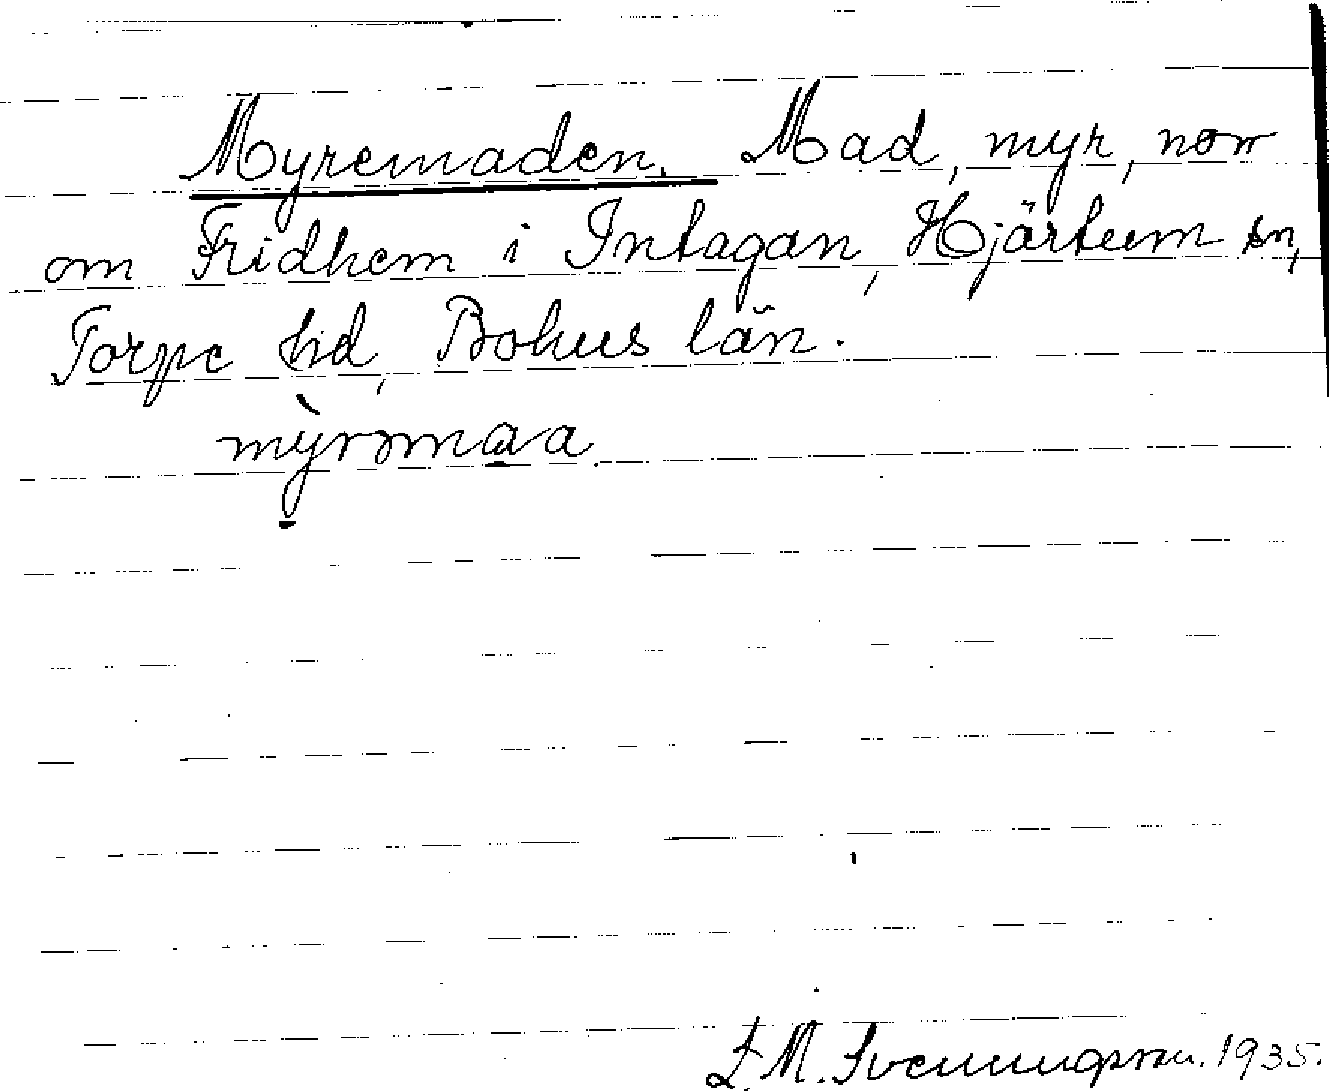 Myremaden. Mad, myr, norr
om Fridhem i Intagan, Hjärtum sn,
Torpe hd, Bohus län.
mỳrəmaa
M. Svenningsson. 1935.